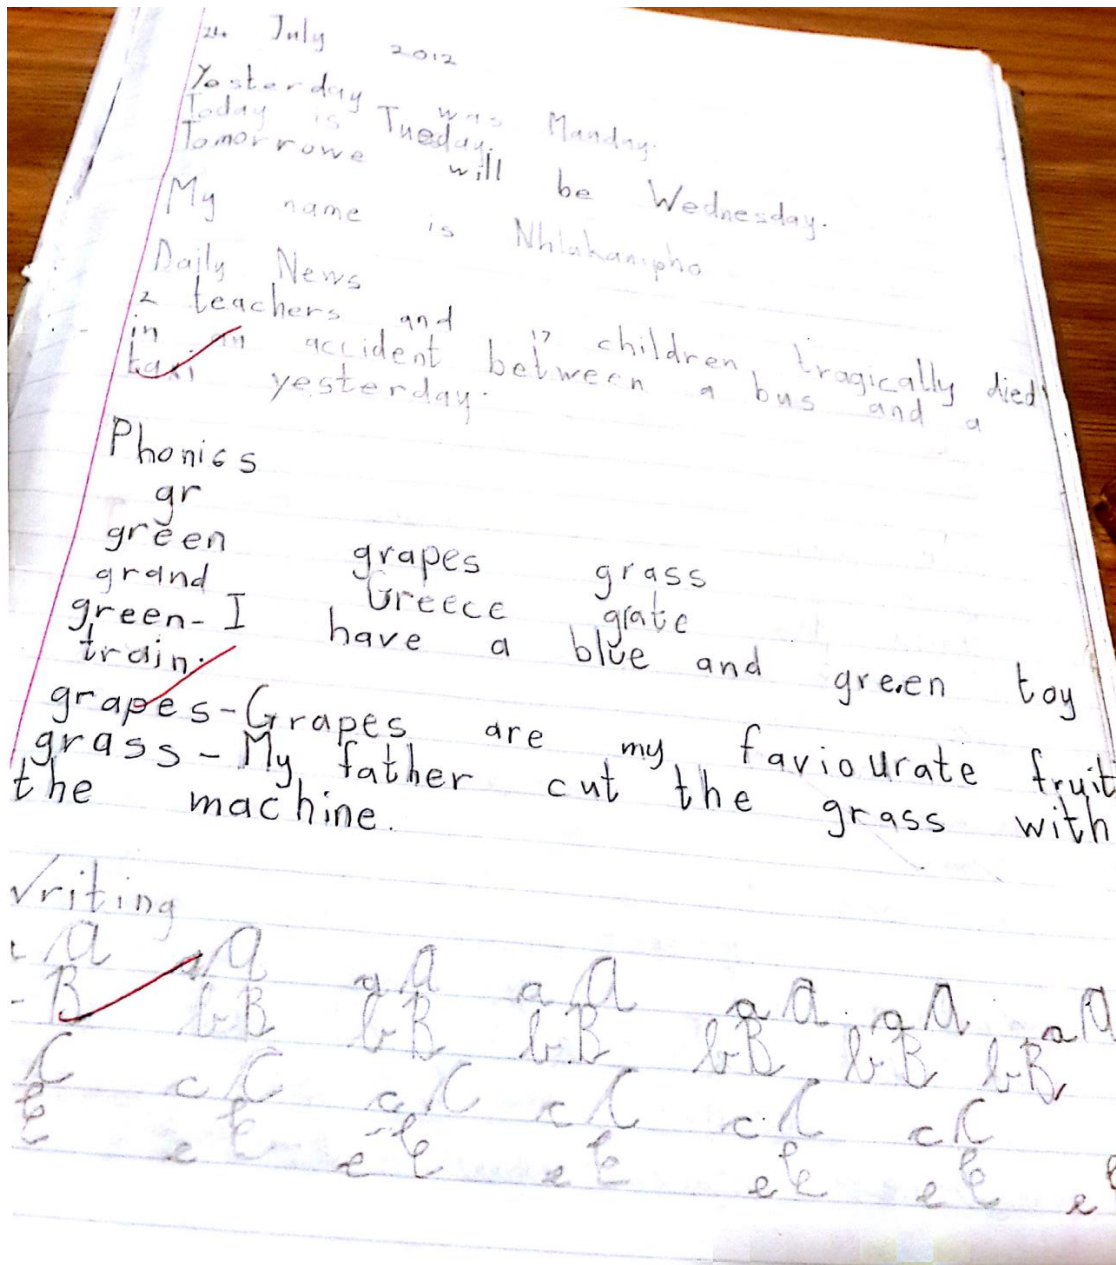 24 July 2012
Yesterday was Manday.
Today is Tueday.
Tomorrowe will be Wednesday.
My name is Nhlakanipho
Daily News
2 teachers and 17 children tragically died
in an accident between a bus and a
taxi yesterday.
Phonics
gr
green grapes grass
grand Greece grate
green- I have a blue and green toy
train.
grapes-Grapes are my faviourate fruit
grass-My father cut the grass with
the machine.
Writing
A aA aA aA aA aA aA
B bB bB bB bB bB bB
C cC cC cC cC cC
E eE eE eE eE eE e